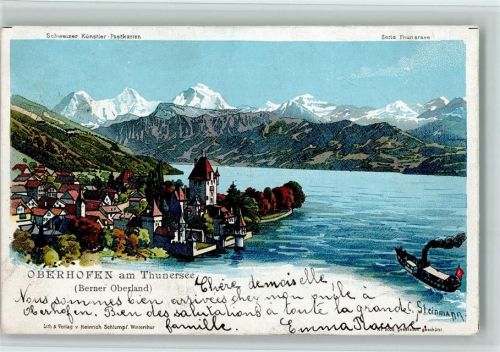 Schweizer Künstler-Postkarten
Serie Thunersee
OBERHOFEN am Thunersee
(Berner Oberland)
Chère demoiselle,
Nous sommes bien arrivées chez mon oncle à
Oberhofen. Bien des salutations à toute la grande
famille.
Emma
Steinmann
Lith & Verlag v. Heinrich Schlumpf, Winterthur